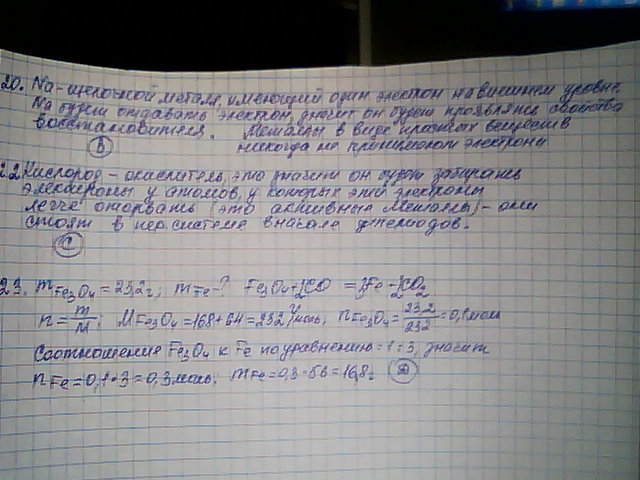 20. Na - щелочной металл, имеющий один электрон на внешнем уровне.
Na будет отдавать электрон, значит он будет проявлять свойства
восстановителя. Металлы в виде простых веществ
никогда не принимают электроны
В
22. Кислород - окислитель, это значит он будет забирать
электроны у атомов, у которых эти электроны
легче оторвать (это активные металлы) - они
стоят в пер. системе вначале периодов.
С
23. mFe3O4 = 23,2г; mFe - ? Fe3O4 + CO = 3Fe + CO2
n = m/M; MFe3O4 = 168 + 64 = 232 г/моль; nFe3O4 = 23,2/232 = 0,1 моль
Соотношение Fe3O4 к Fe по уравнению = 1:3, значит
nFe = 0,1 * 3 = 0,3 моль; mFe = 0,3 · 56 = 16,8г